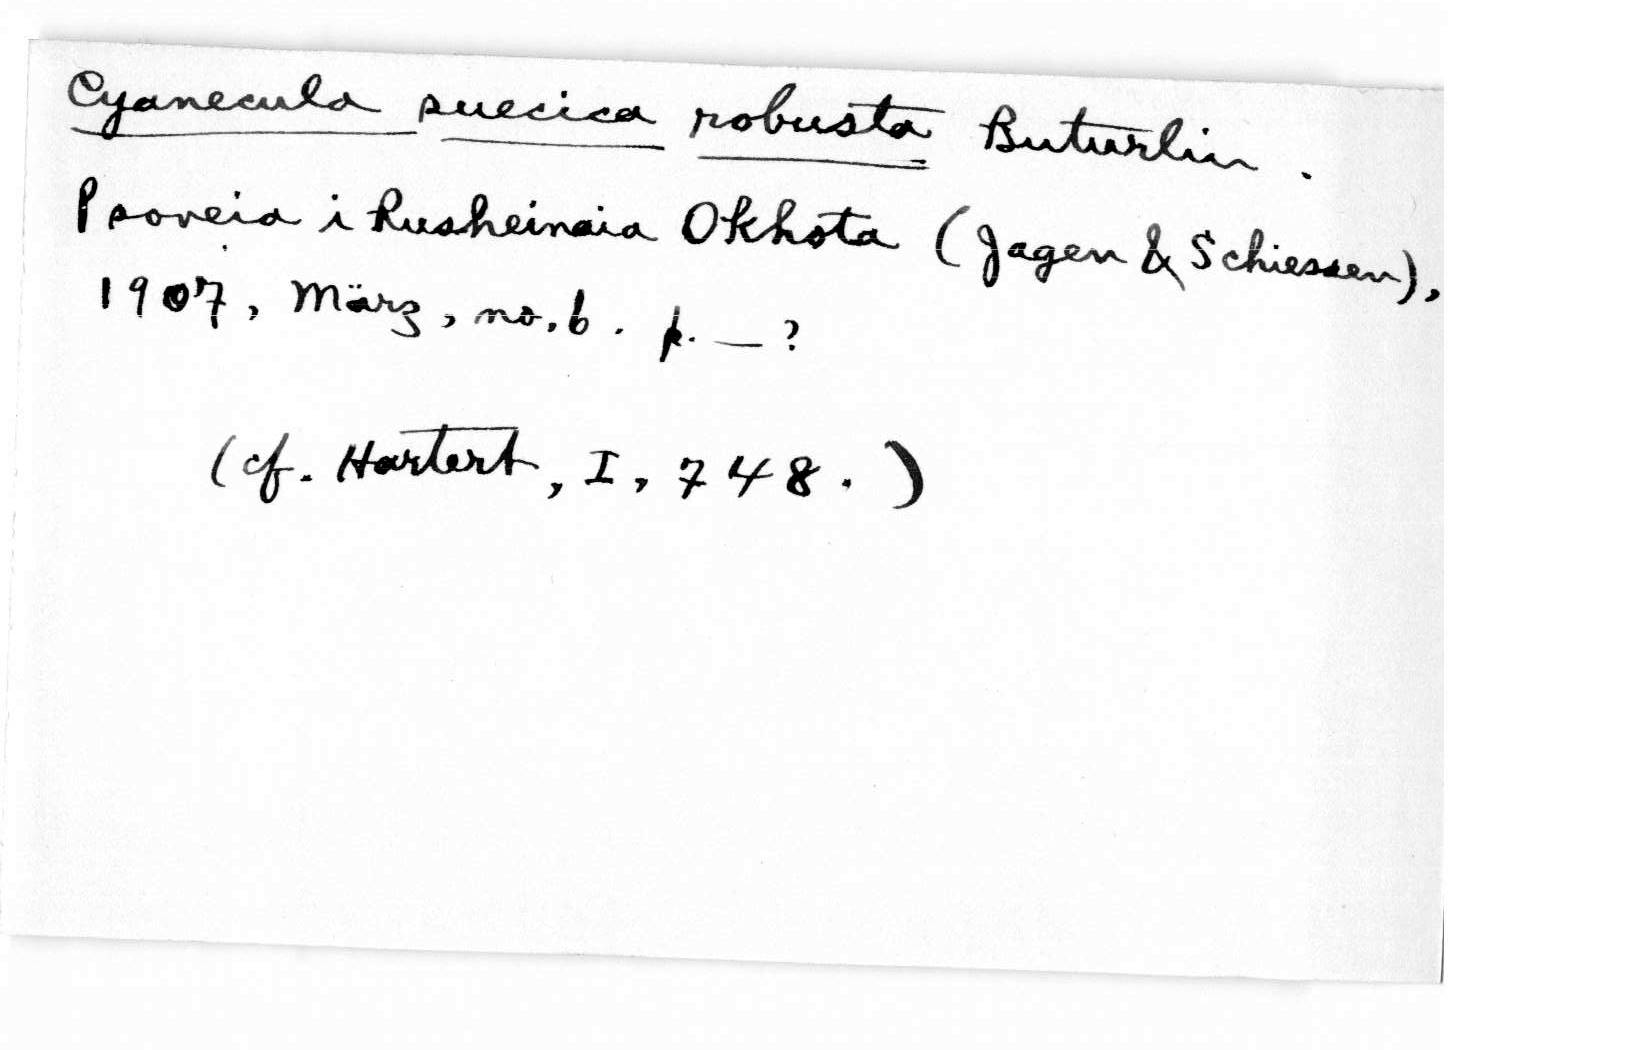 Cyanecula suecica robusta Buturlin.
Psoveia i Rusheinaia Okhota (Jagen & Schiessen),
1907, März, no. 6. p. — ?
(cf. Hartert, I, 748.)